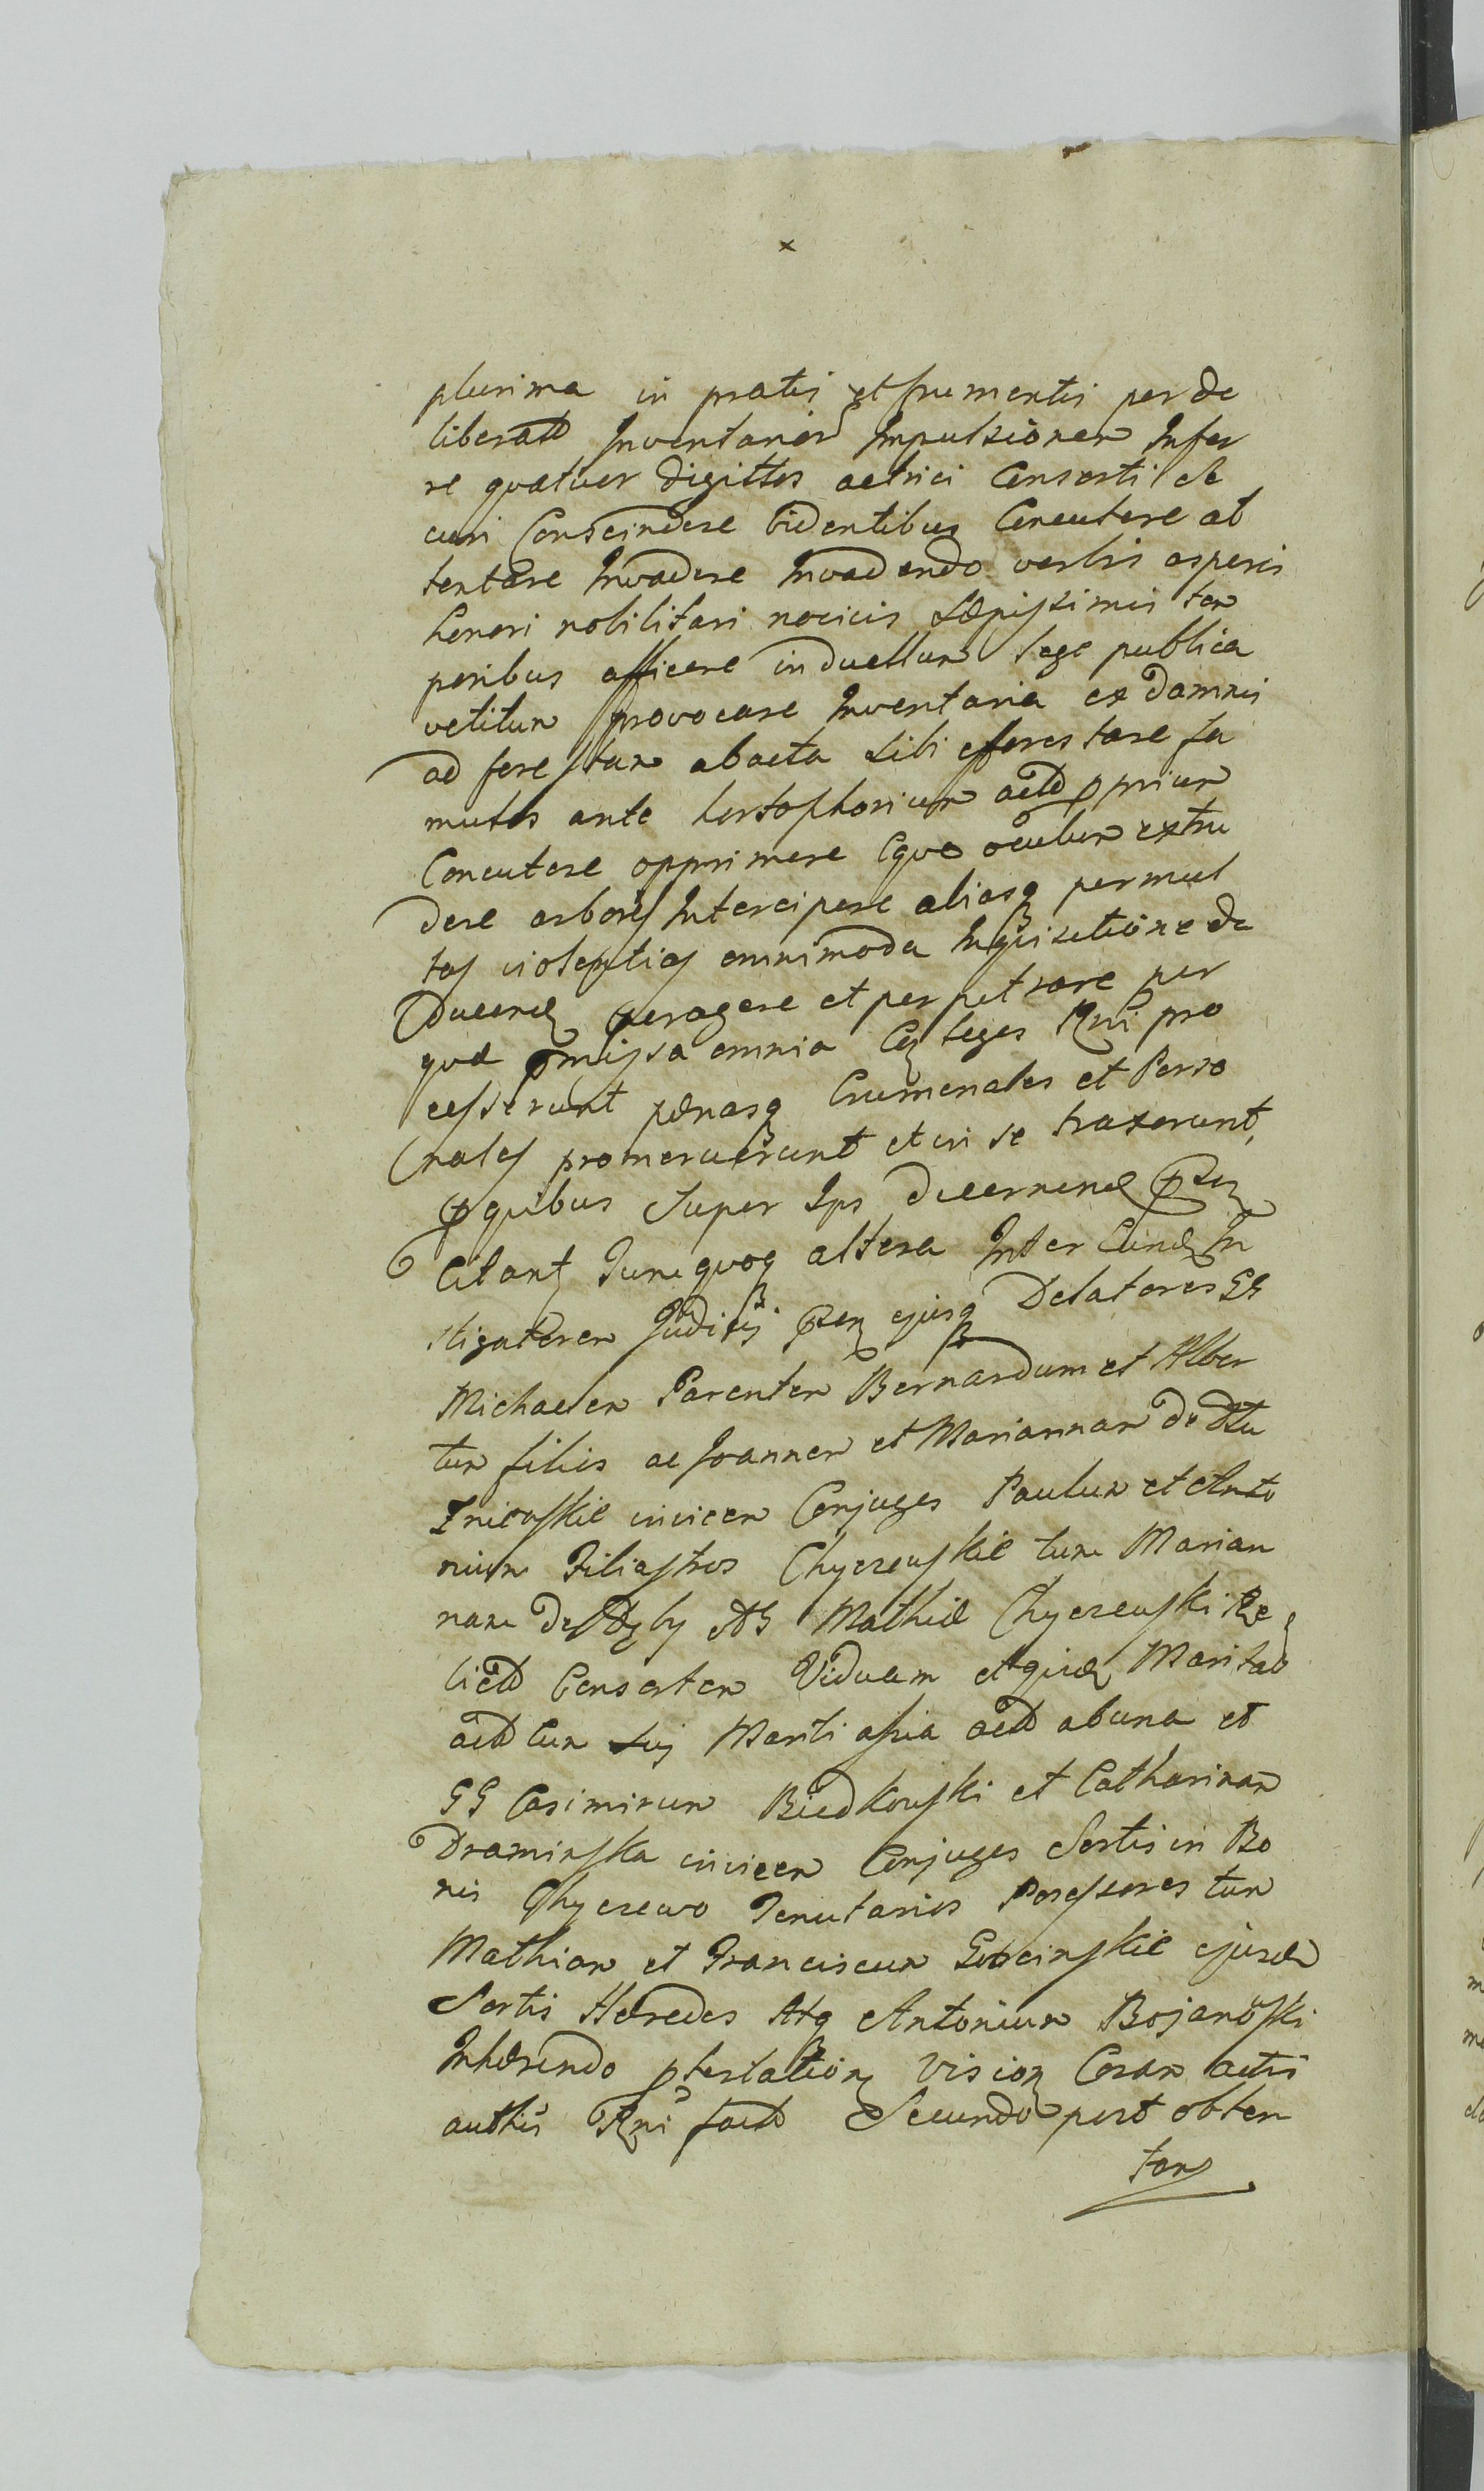 x
plurima in pratis et frumentis per de
liberatā Inventariorū Impulsionem Infer
re quatuor digittos actrici Consorti se
curi Conscindere bidentibus Concutere at
tentare Invadere Invadendo verbis asperis
honori nobilitari nocivis sæpissimis tem
poribus afficere in duellum lege publica
vetitum provocare Inventaria ex damnis
ad forestam abacta sibi efforestare fa
mulos ante
Concutere opprimere Equo oculum extru
dere arbores Intercipere aliasq permul
tas violentias omnimoda Inquisitione de
ducend peragere et perpetrare per
quæ pmissa omnia Cq leges Rni pro
cesserunt pænasq Criminales et Perso
nales promeruerunt et in se traxerunt,
p quibus super Ips decernend psen
Citant Tum quoq altera Inter Eund In
stigatorem Judicij psen ejusq Delatores GG
Michaelem Parentem Bernardum et Alber
tum filios ac Joannem et Mariannam de
invicem Conjuges Paulum et Anto
nium Filiastros Chyczewskie tum Marian
nam de G Mathiæ Chyczewski Re
lictā Consortem Viduam
actā cum sui Mariti actā ab una et
GG Casimirum Biedkowski et Catharinam
Draminska invicem Conjuges Sortis in Bo
nis Chyczewo Tenutarios Possessores tum
Mathiam et Franciscum ejusd
Sortis Hæredes Atq Antonium Bojanowski
Inhærendo ptestation vision Coram actis
authis Rni factā Secundo post obten
tam